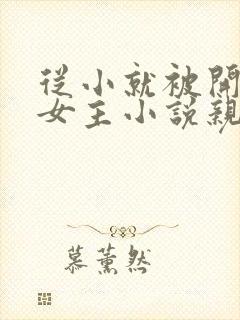 從小就被開
女主小說親
慕薰然